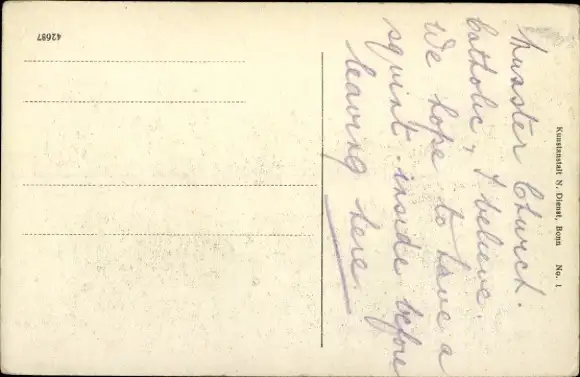 Munster Church.
Catholic, I believe.
We hope to have a
squint inside before
leaving here.
Kunstanstalt N. Dienst, Bonn No. 1
42687